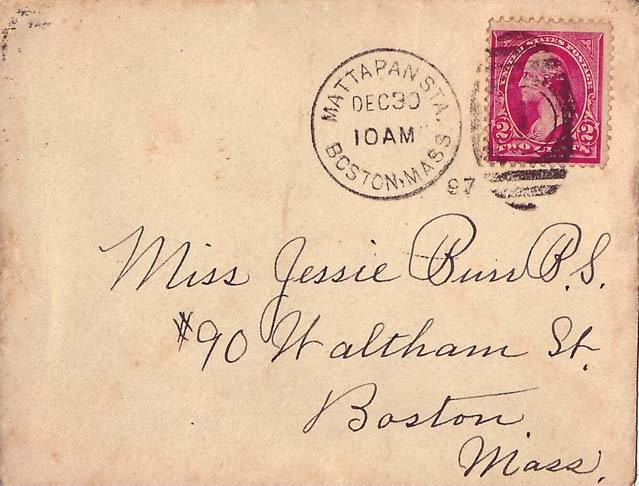 UNITED STATES POSTAGE
2 2
TWO
MATTAPAN STA.
DEC 30
10 AM
BOSTON, MASS
97
Miss Jessie Burr B.S.
#90 Waltham St.
Boston
Mass.